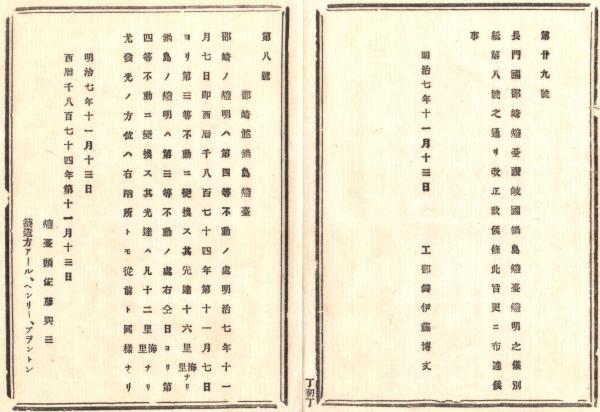 第廿九號
長門國部崎燈臺讃岐國鍋島燈臺燈明之儀別
紙第八號之通リ改正致候條此旨更ニ布達候
事
明治七年十一月十三日
工部卿伊藤博文
丁初丁
第八號
部崎並鍋島燈臺
部崎ノ燈明ハ第四等不動ノ處明治七年十一
月七日即西暦千八百七十四年第十一月七日
ヨリ第三等不動ニ變換ス其光達十六里海里ナリ
鍋島ノ燈明ハ第三等不動ノ處右仝日ヨリ第
四等不動ニ變換ス其光達ハ凡十二里海里ナリ
尤發光ノ方位ハ右兩所トモ從前ト同樣ナリ
明治七年十一月十三日
西暦千八百七十四年第十一月十三日
燈臺頭佐藤與三
築造方アール、ヘンリー、ブラントン